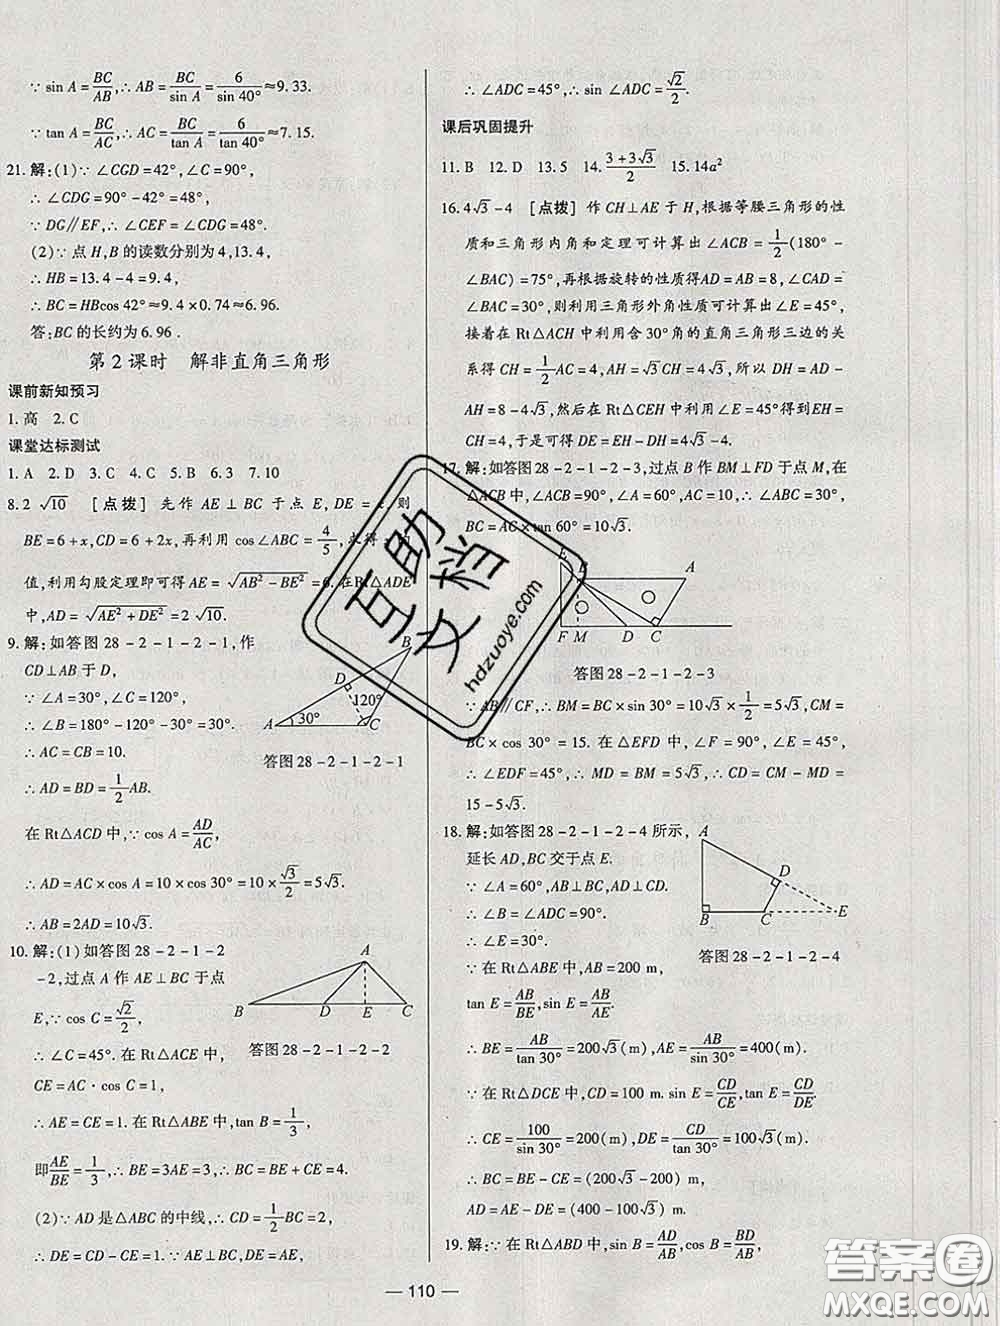 ∵ sin A = BC/AB, ∴ AB = BC/sin A = 6/sin 40° ≈ 9.33.
∵ tan A = BC/AC, ∴ AC = BC/tan A = 6/tan 40° ≈ 7.15.
21. 解:(1)∵ ∠CGD = 42°, ∠C = 90°,
∴ ∠CDG = 90° - 42° = 48°,
∵ DG∥EF, ∴ ∠CEF = ∠CDG = 48°.
(2)∵ 点 H,B 的读数分别为 4,13.4,
∴ HB = 13.4 - 4 = 9.4,
∴ BC = HBcos 42° ≈ 9.4 × 0.74 ≈ 6.96.
答:BC 的长约为 6.96.
第 2 课时 解非直角三角形
课前新知预习
1. 高 2. C
课堂达标测试
1. A 2. D 3. C 4. C 5. B 6. 3 7. 10
8. 2√10 [点拨] 先作 AE⊥BC 于点 E, DE = x, 则
BE = 6 + x, CD = 6 + 2x, 再利用 cos∠ABC = 4/5, 求得 x
值, 利用勾股定理即可得 AE = √(AB² - BE²) = 6. 在 Rt△ADE
中, AD = √(AE² + DE²) = 2√10.
9. 解:如答图 28-2-1-2-1, 作
CD⊥AB 于 D,
∵ ∠A = 30°, ∠C = 120°,
∴ ∠B = 180° - 120° - 30° = 30°.
∴ AC = CB = 10.
∴ AD = BD = 1/2 AB.
在 Rt△ACD 中, ∵ cos A = AD/AC,
∴ AD = AC × cos A = 10 × cos 30° = 10 × √3/2 = 5√3.
∴ AB = 2AD = 10√3.
B
D
120°
A 30° C
答图 28-2-1-2-1
10. 解:(1)如答图 28-2-1-2
-2, 过点 A 作 AE⊥BC 于点
E, ∵ cos C = √2/2,
∴ ∠C = 45°. 在 Rt△ACE 中,
CE = AC·cos C = 1,
∴ AE = CE = 1. 在 Rt△ABE 中, tan B = 1/3,
即 AE/BE = 1/3, ∴ BE = 3AE = 3, ∴ BC = BE + CE = 4.
(2)∵ AD 是△ABC 的中线, ∴ CD = 1/2 BC = 2,
∴ DE = CD - CE = 1. ∵ AE⊥BC, DE = AE,
A
B D E C
答图 28-2-1-2-2
∴ ∠ADC = 45°, ∴ sin ∠ADC = √2/2.
课后巩固提升
11. B 12. D 13. 5 14. (3+3√3)/2 15. 14a²
16. 4√3 - 4 [点拨] 作 CH⊥AE 于 H, 根据等腰三角形的性
质和三角形内角和定理可计算出 ∠ACB = 1/2(180° -
∠BAC) = 75°, 再根据旋转的性质得 AD = AB = 8, ∠CAD =
∠BAC = 30°, 则利用三角形外角性质可计算出 ∠E = 45°,
接着在 Rt△ACH 中利用含 30° 角的直角三角形三边的关
系得 CH = 1/2 AC = 4, AH = √3 CH = 4√3, 所以 DH = AD -
AH = 8 - 4√3, 然后在 Rt△CEH 中利用 ∠E = 45° 得到 EH =
CH = 4, 于是可得 DE = EH - DH = 4√3 - 4.
17. 解:如答图 28-2-1-2-3, 过点 B 作 BM⊥FD 于点 M, 在
△ACB 中, ∠ACB = 90°, ∠A = 60°, AC = 10, ∴ ∠ABC = 30°,
BC = AC × tan 60° = 10√3.
E B A
F M D C
答图 28-2-1-2-3
∵ AB∥CF, ∴ BM = BC × sin 30° = 10√3 × 1/2 = 5√3, CM =
BC × cos 30° = 15. 在 △EFD 中, ∠F = 90°, ∠E = 45°,
∴ ∠EDF = 45°, ∴ MD = BM = 5√3, ∴ CD = CM - MD =
15 - 5√3.
18. 解:如答图 28-2-1-2-4 所示,
延长 AD, BC 交于点 E.
∵ ∠A = 60°, AB⊥BC, AD⊥CD.
∴ ∠B = ∠ADC = 90°.
∴ ∠E = 30°.
∵ 在 Rt△ABE 中, AB = 200 m,
tan E = AB/BE, sin E = AB/AE.
∴ BE = AB/tan 30° = 200√3(m), AE = AB/sin 30° = 400(m).
∵ 在 Rt△DCE 中, CD = 100 m. sin E = CD/CE, tan E = CD/DE.
∴ CE = 100/sin 30° = 200(m), DE = CD/tan 30° = 100√3(m).
∴ BC = BE - CE = (200√3 - 200) m,
AD = AE - DE = (400 - 100√3) m.
A
D
B C E
答图 28-2-1-2-4
19. 解:∵ 在 Rt△ABD 中, sin B = AD/AB, cos B = BD/AB,
— 110 —
百助文档
hdzuoye.com
答案圈
MXQE.COM